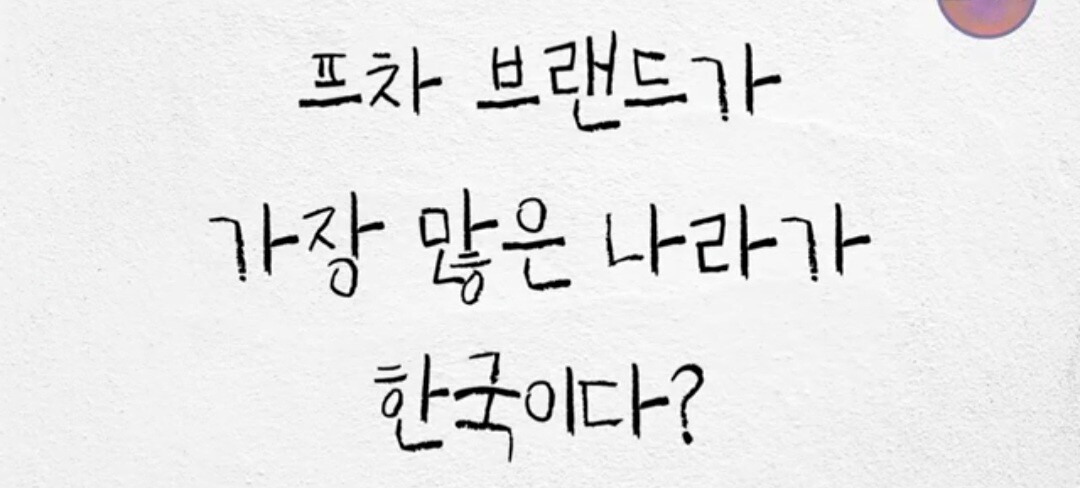 프차 브랜드가
가장 많은 나라가
한국이다?